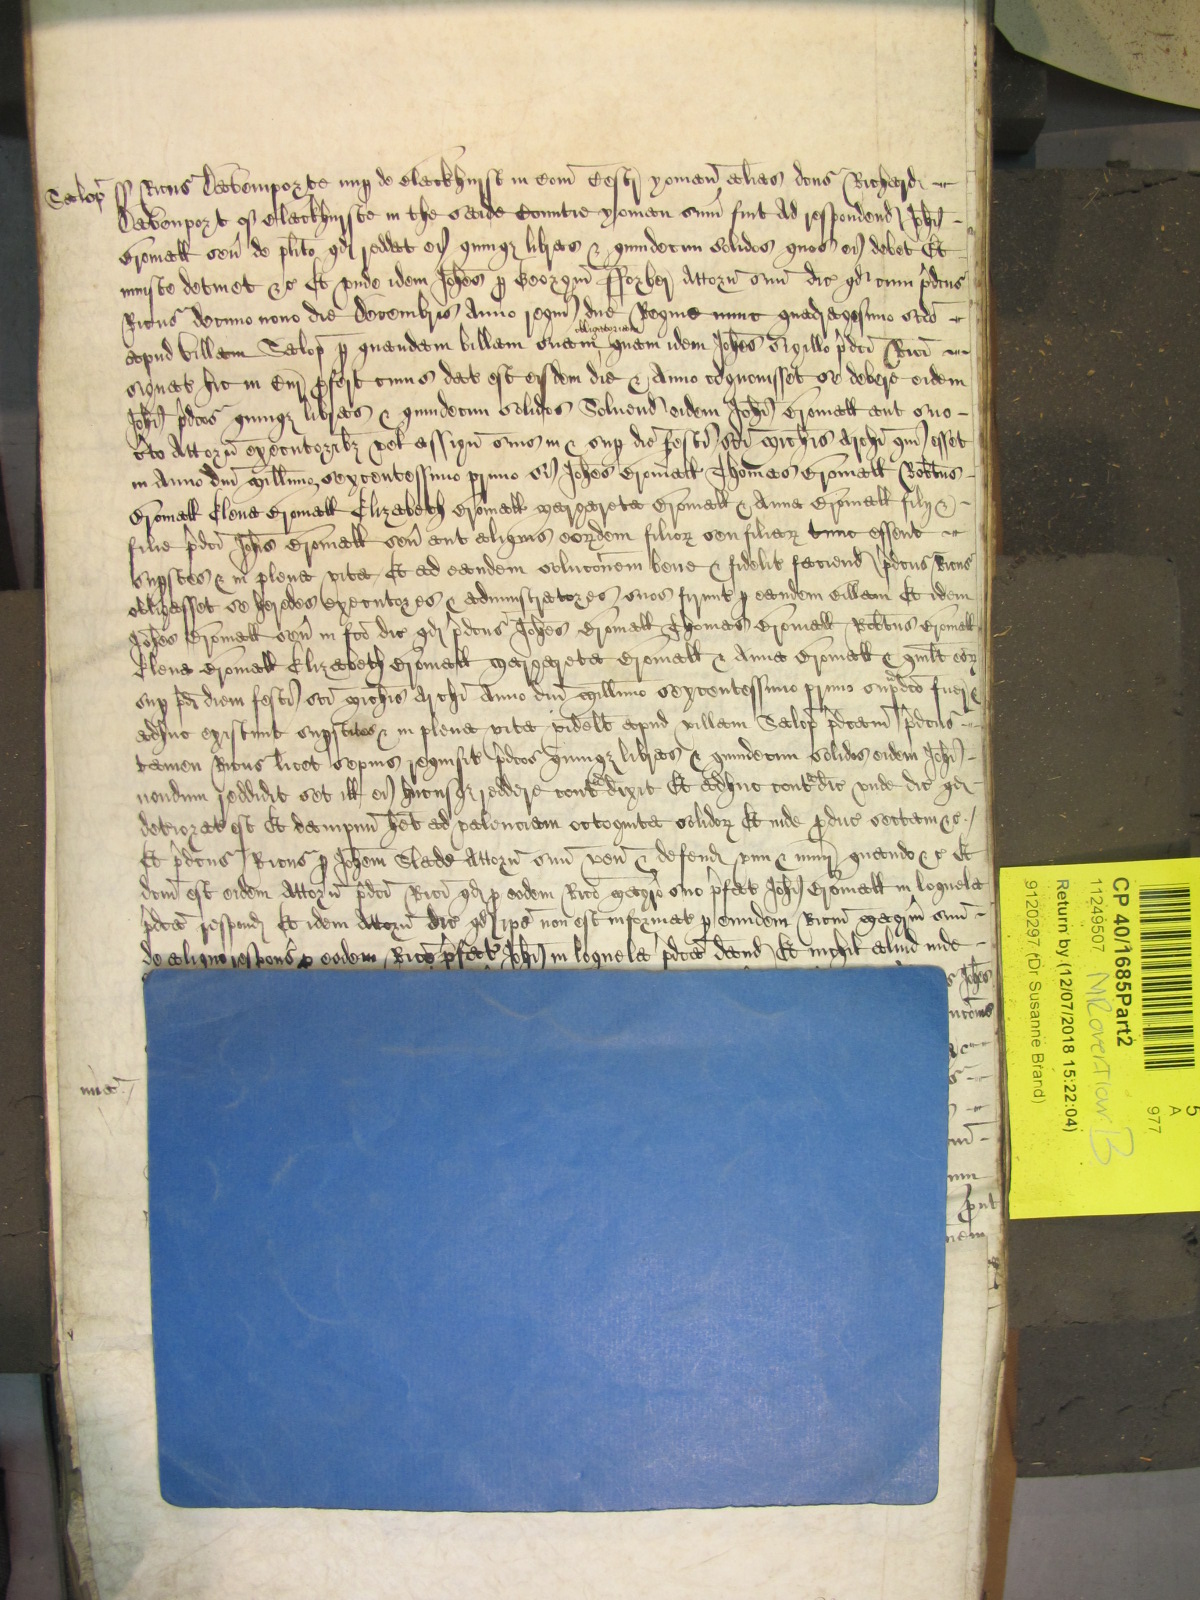 Salop ss Ricus Davemporte nup de Clackhurst in Com Cestr yoman alias dcus Richard
Davenport of Clackhurste in the saide Countie yoman sum fuit ad respondend Johi
Cromall sen de plito qd reddat ei quinqz libras & quindecim solidos quos ei debet Et
iniuste detinet &c Et unde idem Johes p Georgiu Attorn suu dic qd cum pdcus
Ricus decimo nono die Decembris Anno regni dne Regine nunc quadragesimo scdo
apud villam Salop p quandam billam suam obligatoriam quam idem Johes sigillo pdci Rici
signat hic in Cur pfert cuius dat est eisdem die & Anno cognouisset se debere eidem
Johi pdcas quinqz libras & quindecim solidos Soluend eidem Johi Cromall aut suo
cto Attorn executoribz vel assign suis in & sup die festi sci Michis Archi qui esset
in Anno dni Millimo sexcentessimo primo si Johes Cromall Thomas Cromall Robtus
Cromall Elena Cromall Elizabeth Cromall Margareta Cromall & Anna Cromall filij &
filie pdci Johis Cromall sen aut aliquis eordem filior seu filiar tunc essent
supstes & in plena vita Et ad eandem solucoem bene & fidelit faciend pdcus Ricus
obligasset se heredes executores & administratores suos firmit p eandem billam Et idem
Johes Cromall sen in fco dic qd pdcus Johes Cromall Thomas Cromall Robtus Cromall
Elena Cromall Elizabeth Cromall Margareta Cromall & Anna Cromall & quilt eor
sup pd diem festi sci Michis Archi Anno dni Millimo sexcentessimo primo supdco fuer &
adhuc existunt supstites & in plena vita videlt apud villam Salop pdcam pdcus
tamen Ricus licet sepius requisit pdcas quinqz libras & quindecim solidos eidem Johi
nondum reddidit set ill ei hucusqz reddere contdixit Et adhuc contdic unde dic qd
deteriorat est Et dampnu het ad valenciam octoginta solidor Et inde pduc sectam &c
Et pdcus Ricus p Johem Slade Attorn suu ven & defend vim & iniur quando &c Et
dcm est eidem Attorn pdci Rici qd p eodem Rico Magro suo pfat Johi Cromall in loquela
pdca respond Et idem Attorn dic qd ipe non est informat p eundem Ricum Magrm suu
de aliquo respons p eodem Rico pfat Johi in loquela pdca dand Et nichil aliud inde
s Johes
mia
put
CP 40/1685Part2
11249507
Return by (12/07/2018 15:22:04)
9120297 (Dr Susanne Brand)
5
A
977